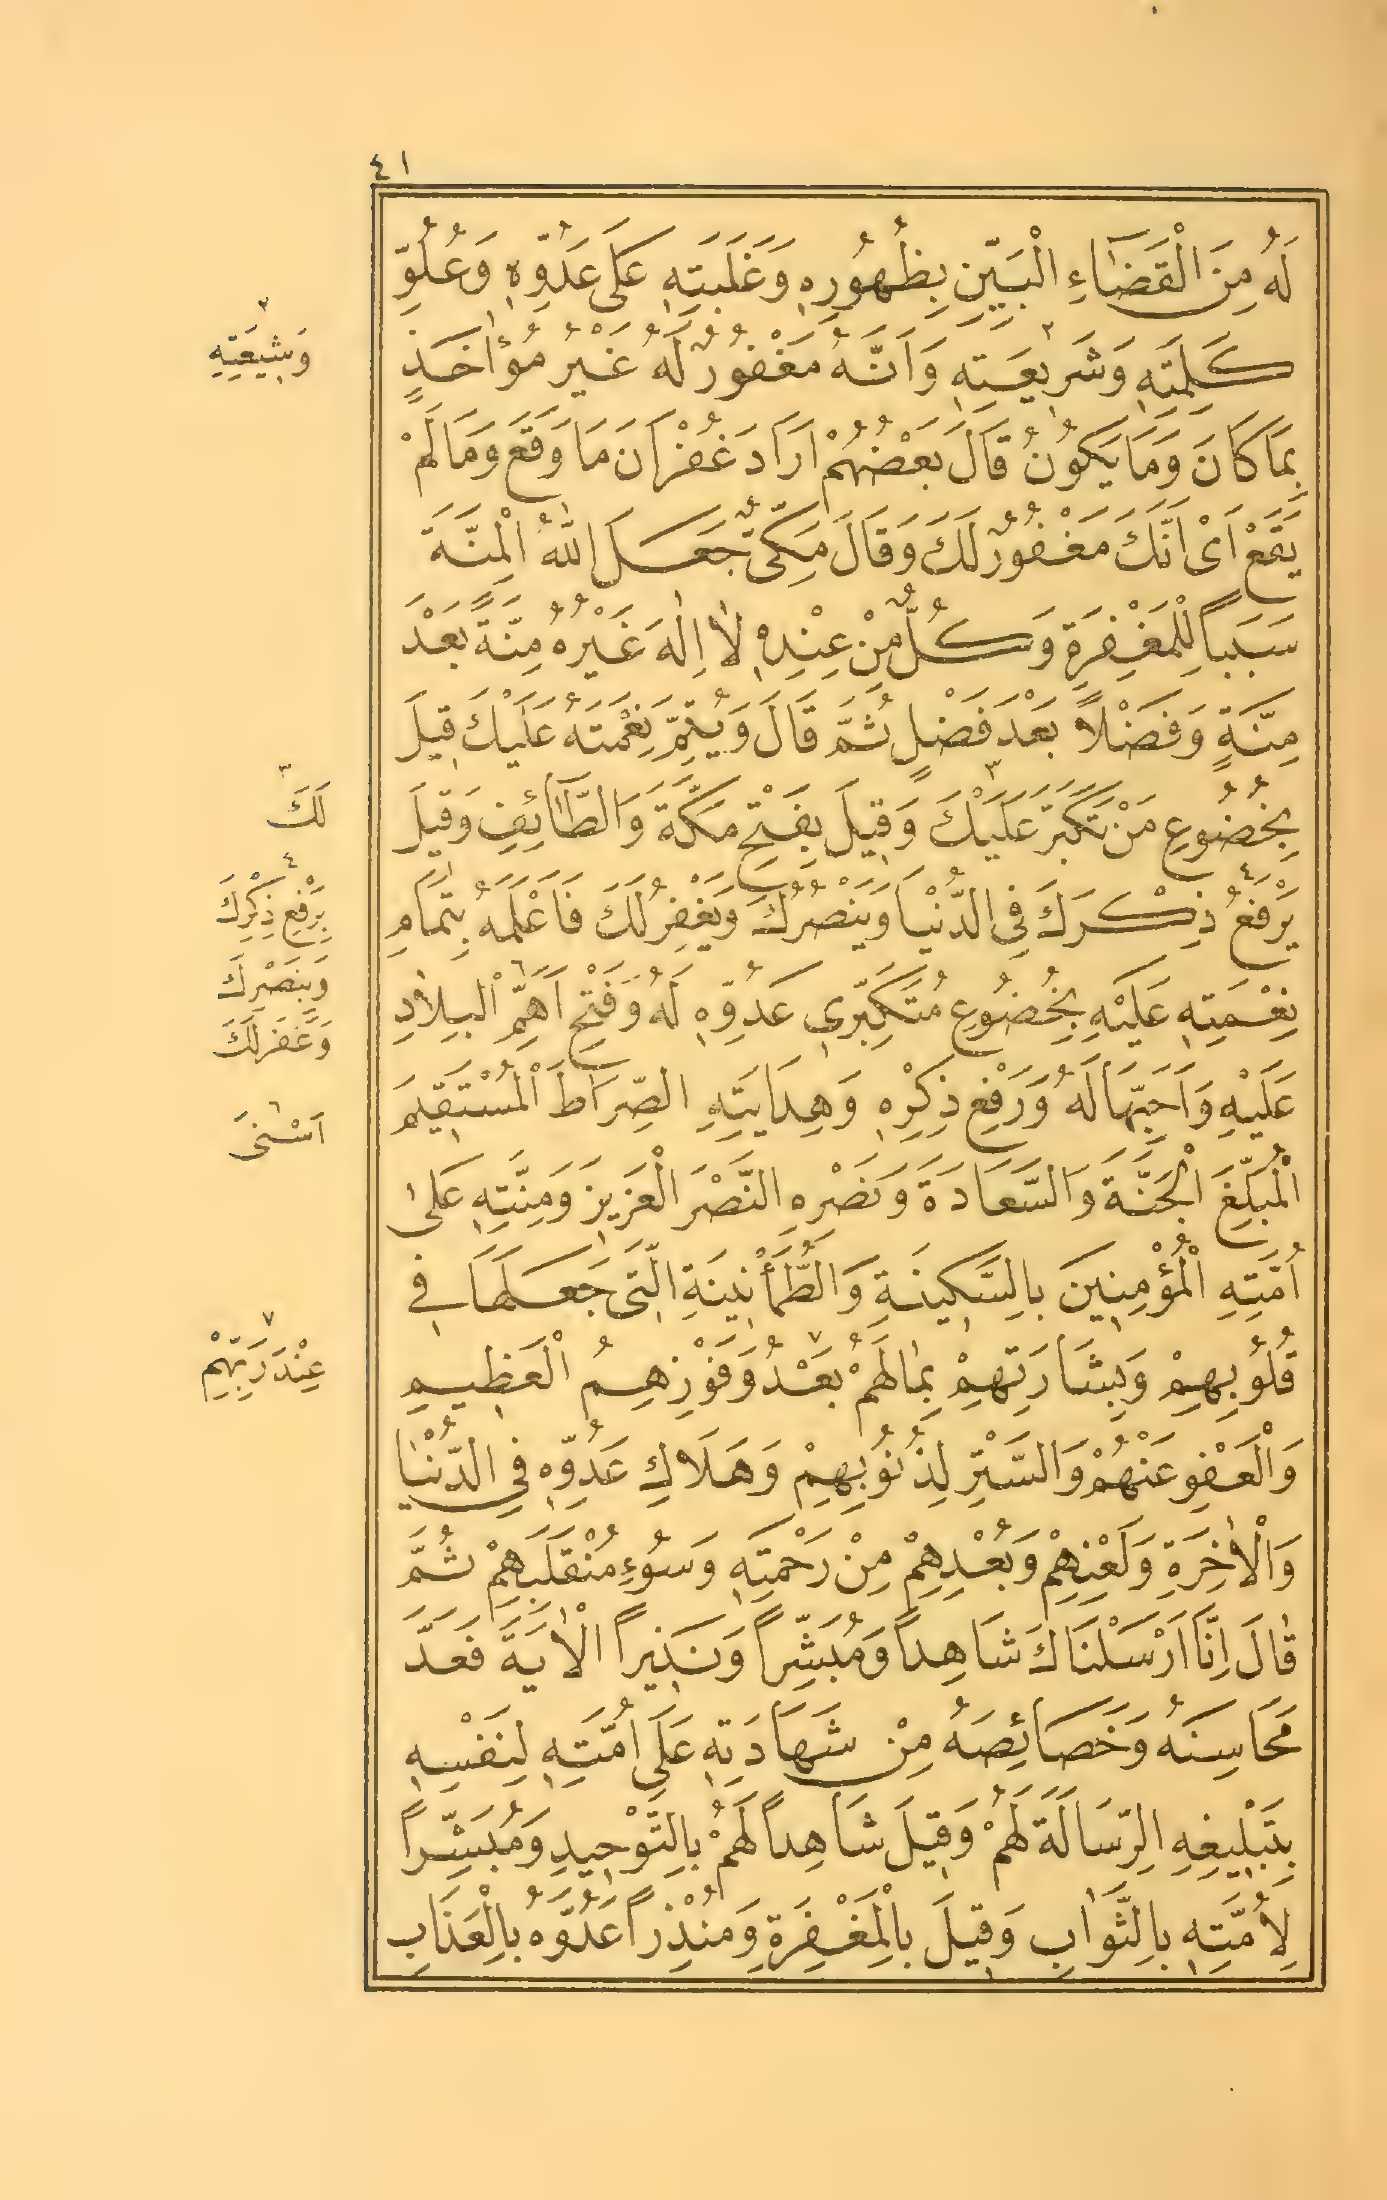 ٤١
لَهُ مِنَ الْقَضَاءِ الْبَيِّنِ بِظُهُورِهِ وَغَلَبَتِهِ عَلَى عَدُوِّهِ وَعُلُوِّ
كَلِمَتِهِ وَشَرِيعَتِهِ٢ وَاَنَّهُ مَغْفُورٌ لَهُ غَيْرُ مُؤَاخَذٍ
بِمَا كَانَ وَمَا يَكُونُ قَالَ بَعْضُهُمْ اَرَادَ غُفْرَانَ مَا وَقَعَ وَمَا لَمْ
يَقَعْ اَىْ اَنَّكَ مَغْفُورٌ لَكَ وَقَالَ مَكِّىٌّ جَعَلَ اللهُ الْمِنَّةَ
سَبَباً لِلْمَغْفِرَةِ وَكُلٌّ مِنْ عِنْدِهِ لَا اِلٰهَ غَيْرُهُ مِنَّةً بَعْدَ
مِنَّةٍ وَفَضْلاً بَعْدَ فَضْلٍ ثُمَّ قَالَ وَيُتِمَّ نِعْمَتَهُ عَلَيْكَ قِيلَ
بِخُضُوعِ مَنْ تَكَبَّرَ عَلَيْكَ٣ وَقِيلَ بِفَتْحِ مَكَّةَ وَالطَّائِفِ وَقِيلَ
يَرْفَعُ٤ ذِكْرَكَ فِي الدُّنْيَا وَيَنْصُرُكَ وَيَغْفِرُ لَكَ فَاَعْلَمَهُ بِتَمَامِ
نِعْمَتِهِ عَلَيْهِ بِخُضُوعِ مُتَكَبِّرِي عَدُوِّهِ لَهُ وَفَتْحِ اَهَمِّ٦ الْبِلَادِ
عَلَيْهِ وَاَحَبِّهَا لَهُ وَرَفْعِ ذِكْرِهِ وَهِدَايَتِهِ الصِّرَاطَ الْمُسْتَقِيمَ
الْمُبَلِّغَ الْجَنَّةَ وَالسَّعَادَةَ وَنَصْرِهِ النَّصْرَ الْعَزِيزَ وَمِنَّتِهِ عَلَى
اُمَّتِهِ الْمُؤْمِنِينَ بِالسَّكِينَةِ وَالطُّمَأْنِينَةِ الَّتِى جَعَلَهَا فِي
قُلُوبِهِمْ وَبِشَارَتِهِمْ بِمَا لَهُمْ٧ بَعْدُ وَفَوْزِهِمُ الْعَظِيمِ
وَالْعَفْوِ عَنْهُمْ وَالسَّتْرِ لِذُنُوبِهِمْ وَهَلَاكِ عَدُوِّهِ فِي الدُّنْيَا
وَالْاٰخِرَةِ وَلَعْنِهِمْ وَبُعْدِهِمْ مِنْ رَحْمَتِهِ وَسُوءِ مُنْقَلَبِهِمْ ثُمَّ
قَالَ اِنَّا اَرْسَلْنَاكَ شَاهِداً وَمُبَشِّراً وَنَذِيراً الْاٰيَةَ فَعَدَّ
مَحَاسِنَهُ وَخَصَائِصَهُ مِنْ شَهَادَتِهِ عَلَى اُمَّتِهِ لِنَفْسِهِ
بِتَبْلِيغِهِ الرِّسَالَةَ لَهُمْ وَقِيلَ شَاهِداً لَهُمْ بِالتَّوْحِيدِ وَمُبَشِّراً
لِاُمَّتِهِ بِالثَّوَابِ وَقِيلَ بِالْمَغْفِرَةِ وَمُنْذِراً عَدُوَّهُ بِالْعَذَابِ
٢
وَشِيعَتِهِ
٣
لَكَ
٤
بِرَفْعِ ذِكْرِكَ
وَبِنَصْرِكَ
وَغَفَرَ لَكَ
٦
اَسْنَى
٧
عِنْدَ رَبِّهِمْ